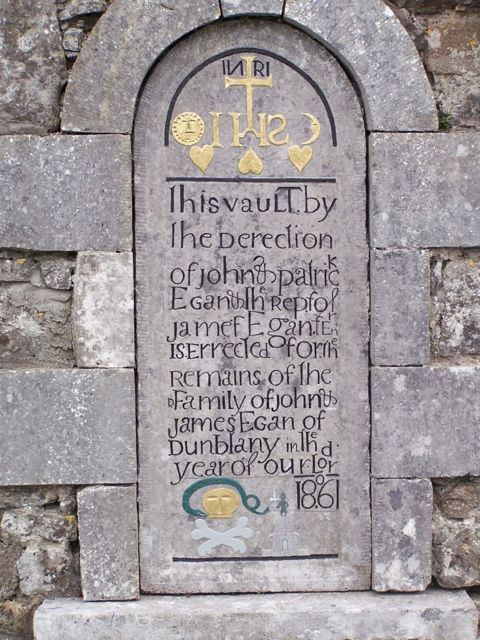 INRI
IHS
This vault by
the derection
of john & patrick
Egan & the Repſol
jameſ Egan
is erected for the
remains of the
Family of john &
james Egan of
Dunblany in the
year of our Lord
1861